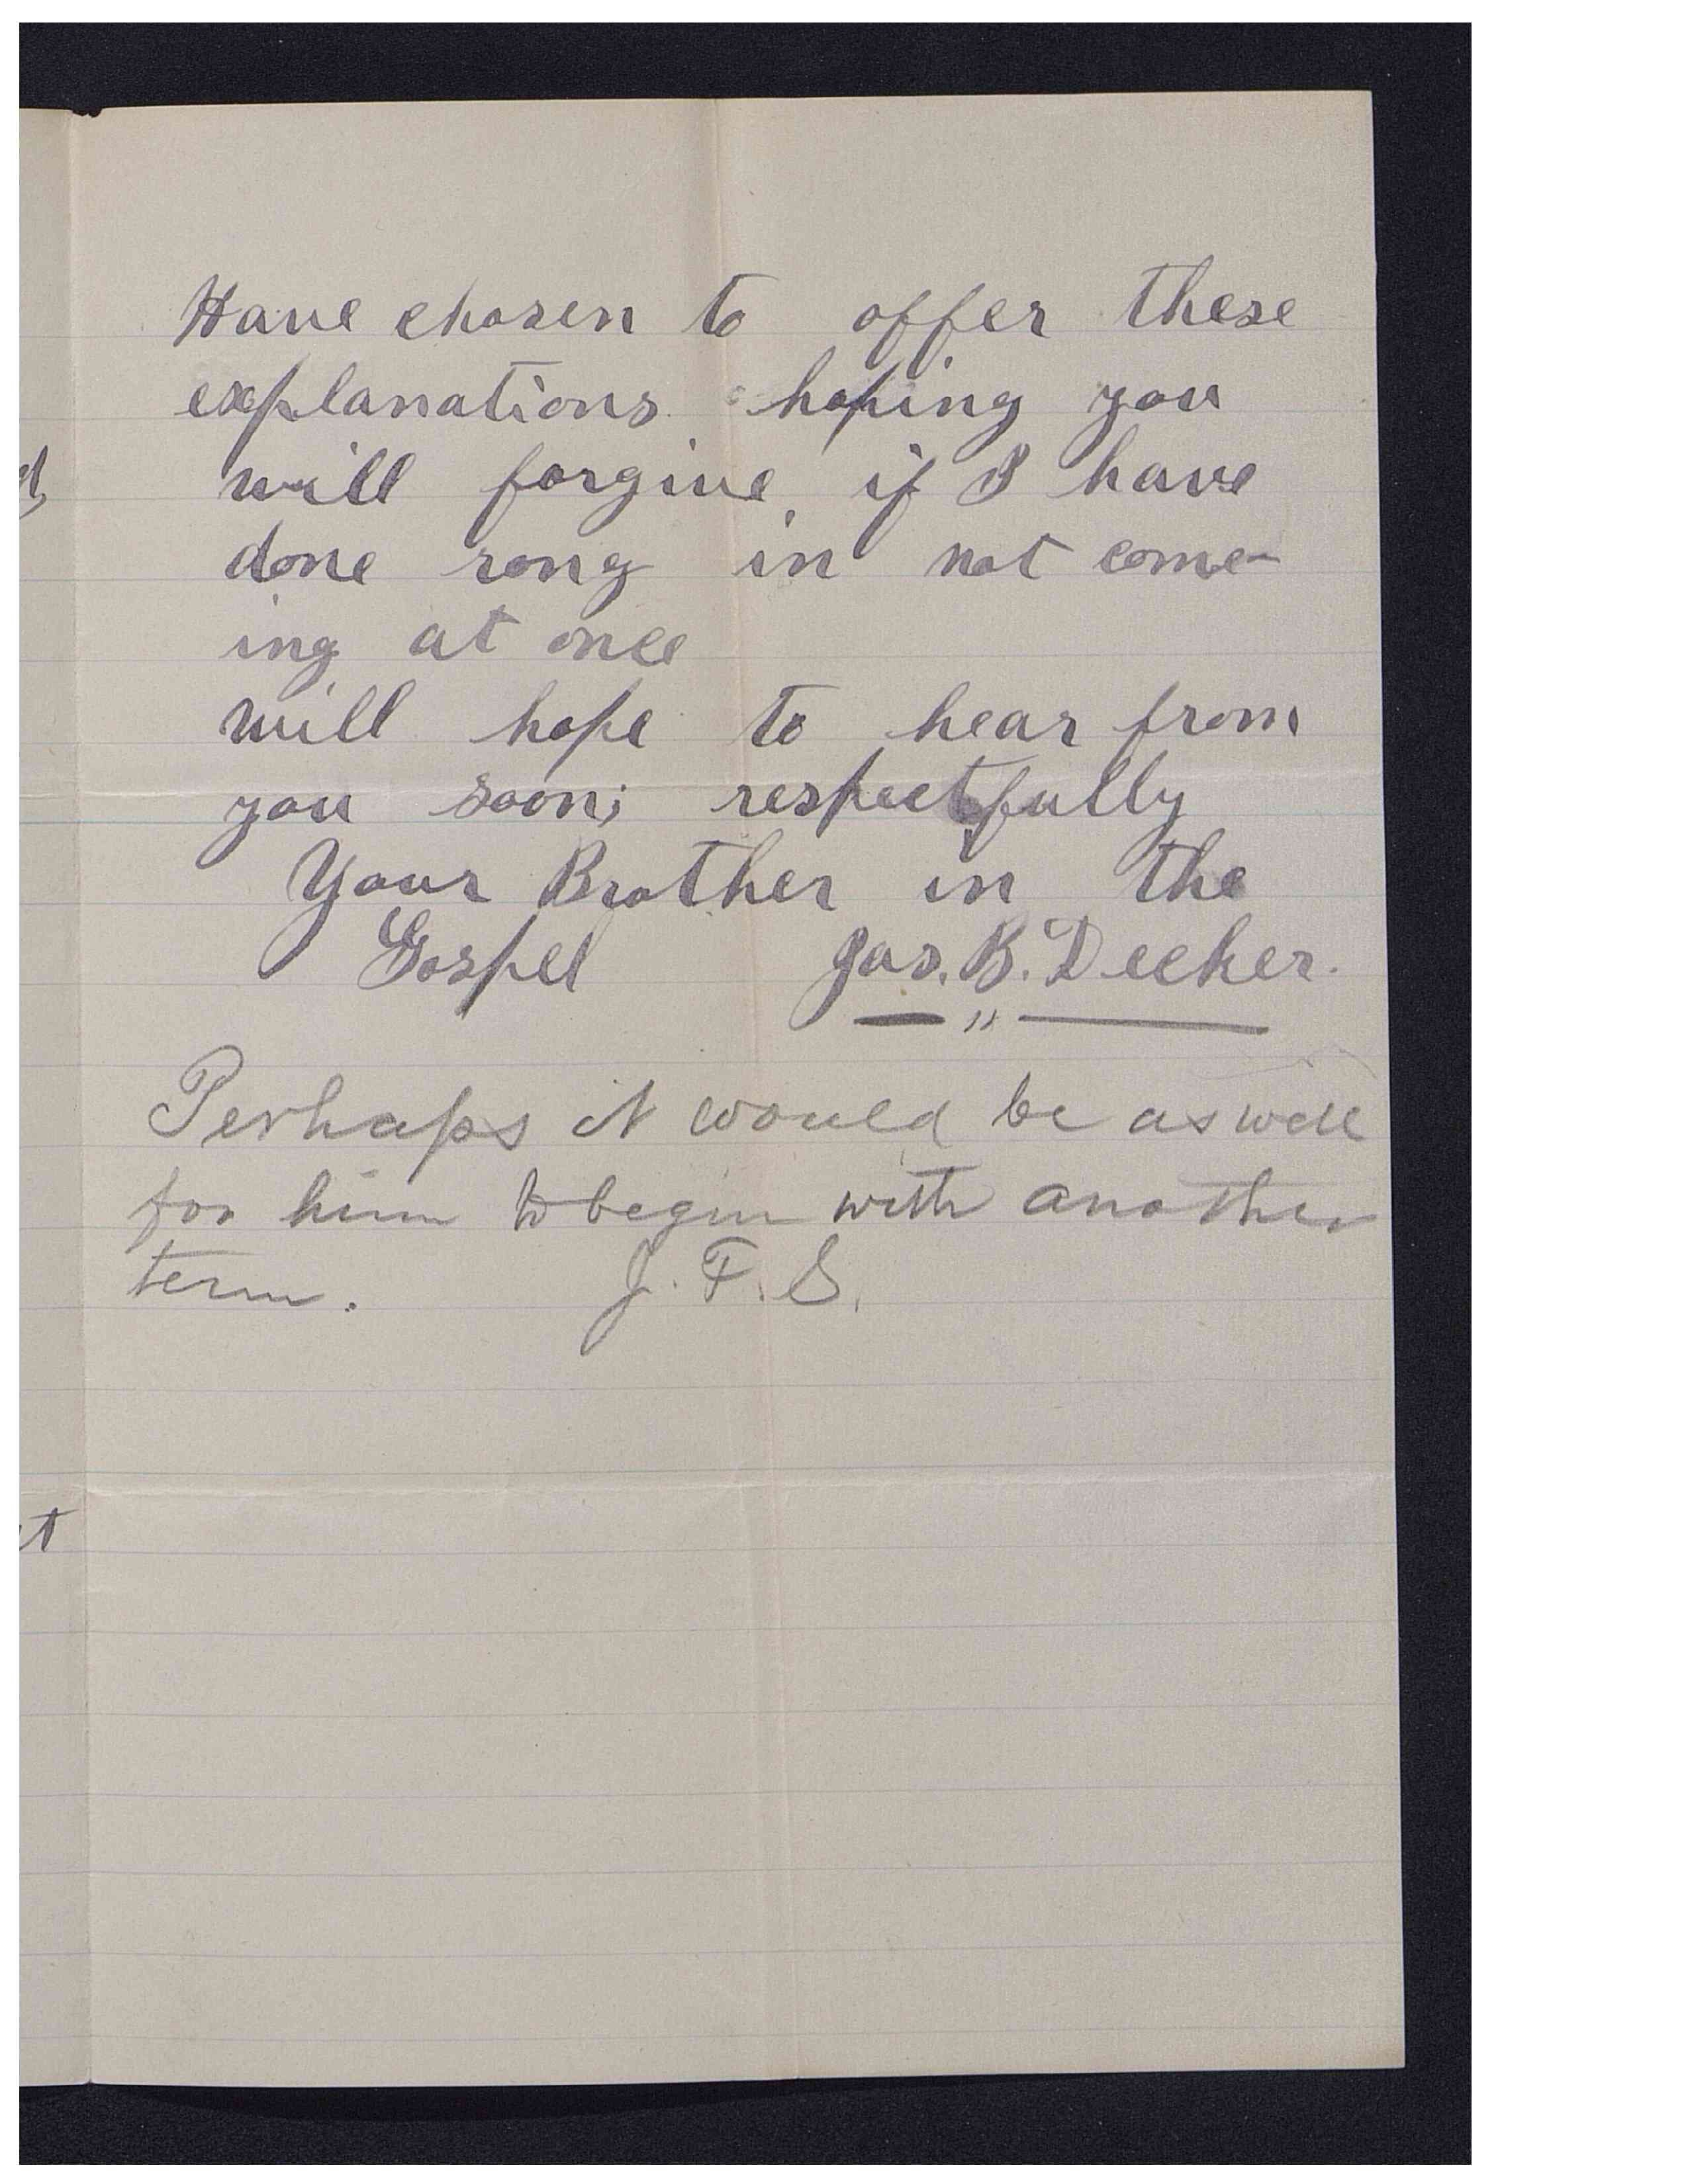 Have chosen to offer these
explanations hoping you
will forgive, if I have
done rong in not come-
ing at once
will hope to hear from
you soon; respectfully
Your Brother in the
Gospel Jas. B. Decker.
Perhaps it would be as well
for him to begin with another
term. J. F. S.